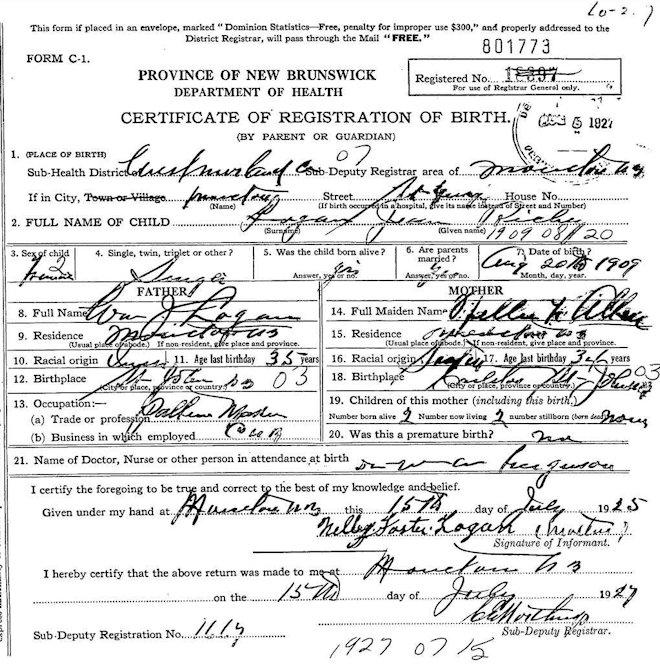 10-2.7
This form if placed in an envelope, marked "Dominion Statistics—Free, penalty for improper use $300," and properly addressed to the
District Registrar, will pass through the Mail "FREE."
801773
FORM C-1.
PROVINCE OF NEW BRUNSWICK
DEPARTMENT OF HEALTH
Registered No.
For use of Registrar General only.
CERTIFICATE OF REGISTRATION OF BIRTH.
(BY PARENT OR GUARDIAN)
5 1927
1. (PLACE OF BIRTH)
Sub-Health District of Westmorland Co 07 Sub-Deputy Registrar area of Moncton NB
If in City, Town or Village Moncton Street St George House No.
(Name) (If birth occurred in a hospital, give its name instead of Street and Number)
2. FULL NAME OF CHILD Logan Jean
(Surname) (Given name) 1909 08 20
3. Sex of child 4. Single, twin, triplet or other? 5. Was the child born alive? 6. Are parents married? 7. Date of birth?
Female Single Answer, yes or no. Yes Answer, yes or no. Aug 20th 1909
Month, day, year.
FATHER MOTHER
8. Full Name Wm J. Logan 14. Full Maiden Name
9. Residence Moncton NB 15. Residence
(Usual place of abode.) If non-resident, give place and province. (Usual place of abode.) If non-resident, give place and province.
10. Racial origin 11. Age last birthday 35 years 16. Racial origin 17. Age last birthday years
12. Birthplace 03 18. Birthplace 03
(City or place, province or country) (City or place, province or country.)
13. Occupation:— 19. Children of this mother (including this birth.)
(a) Trade or profession Number born alive 2 Number now living 2 number stillborn (born dead) none
(b) Business in which employed 20. Was this a premature birth? no
21. Name of Doctor, Nurse or other person in attendance at birth Dr Ferguson
I certify the foregoing to be true and correct to the best of my knowledge and belief.
Given under my hand at Moncton NB this 15th day of July 1925
Nelley Foster Logan (Mother)
Signature of Informant.
I hereby certify that the above return was made to me at Moncton NB
on the 15th day of July 1927
Sub-Deputy Registration No. 1117 Sub-Deputy Registrar.
1927 07 15